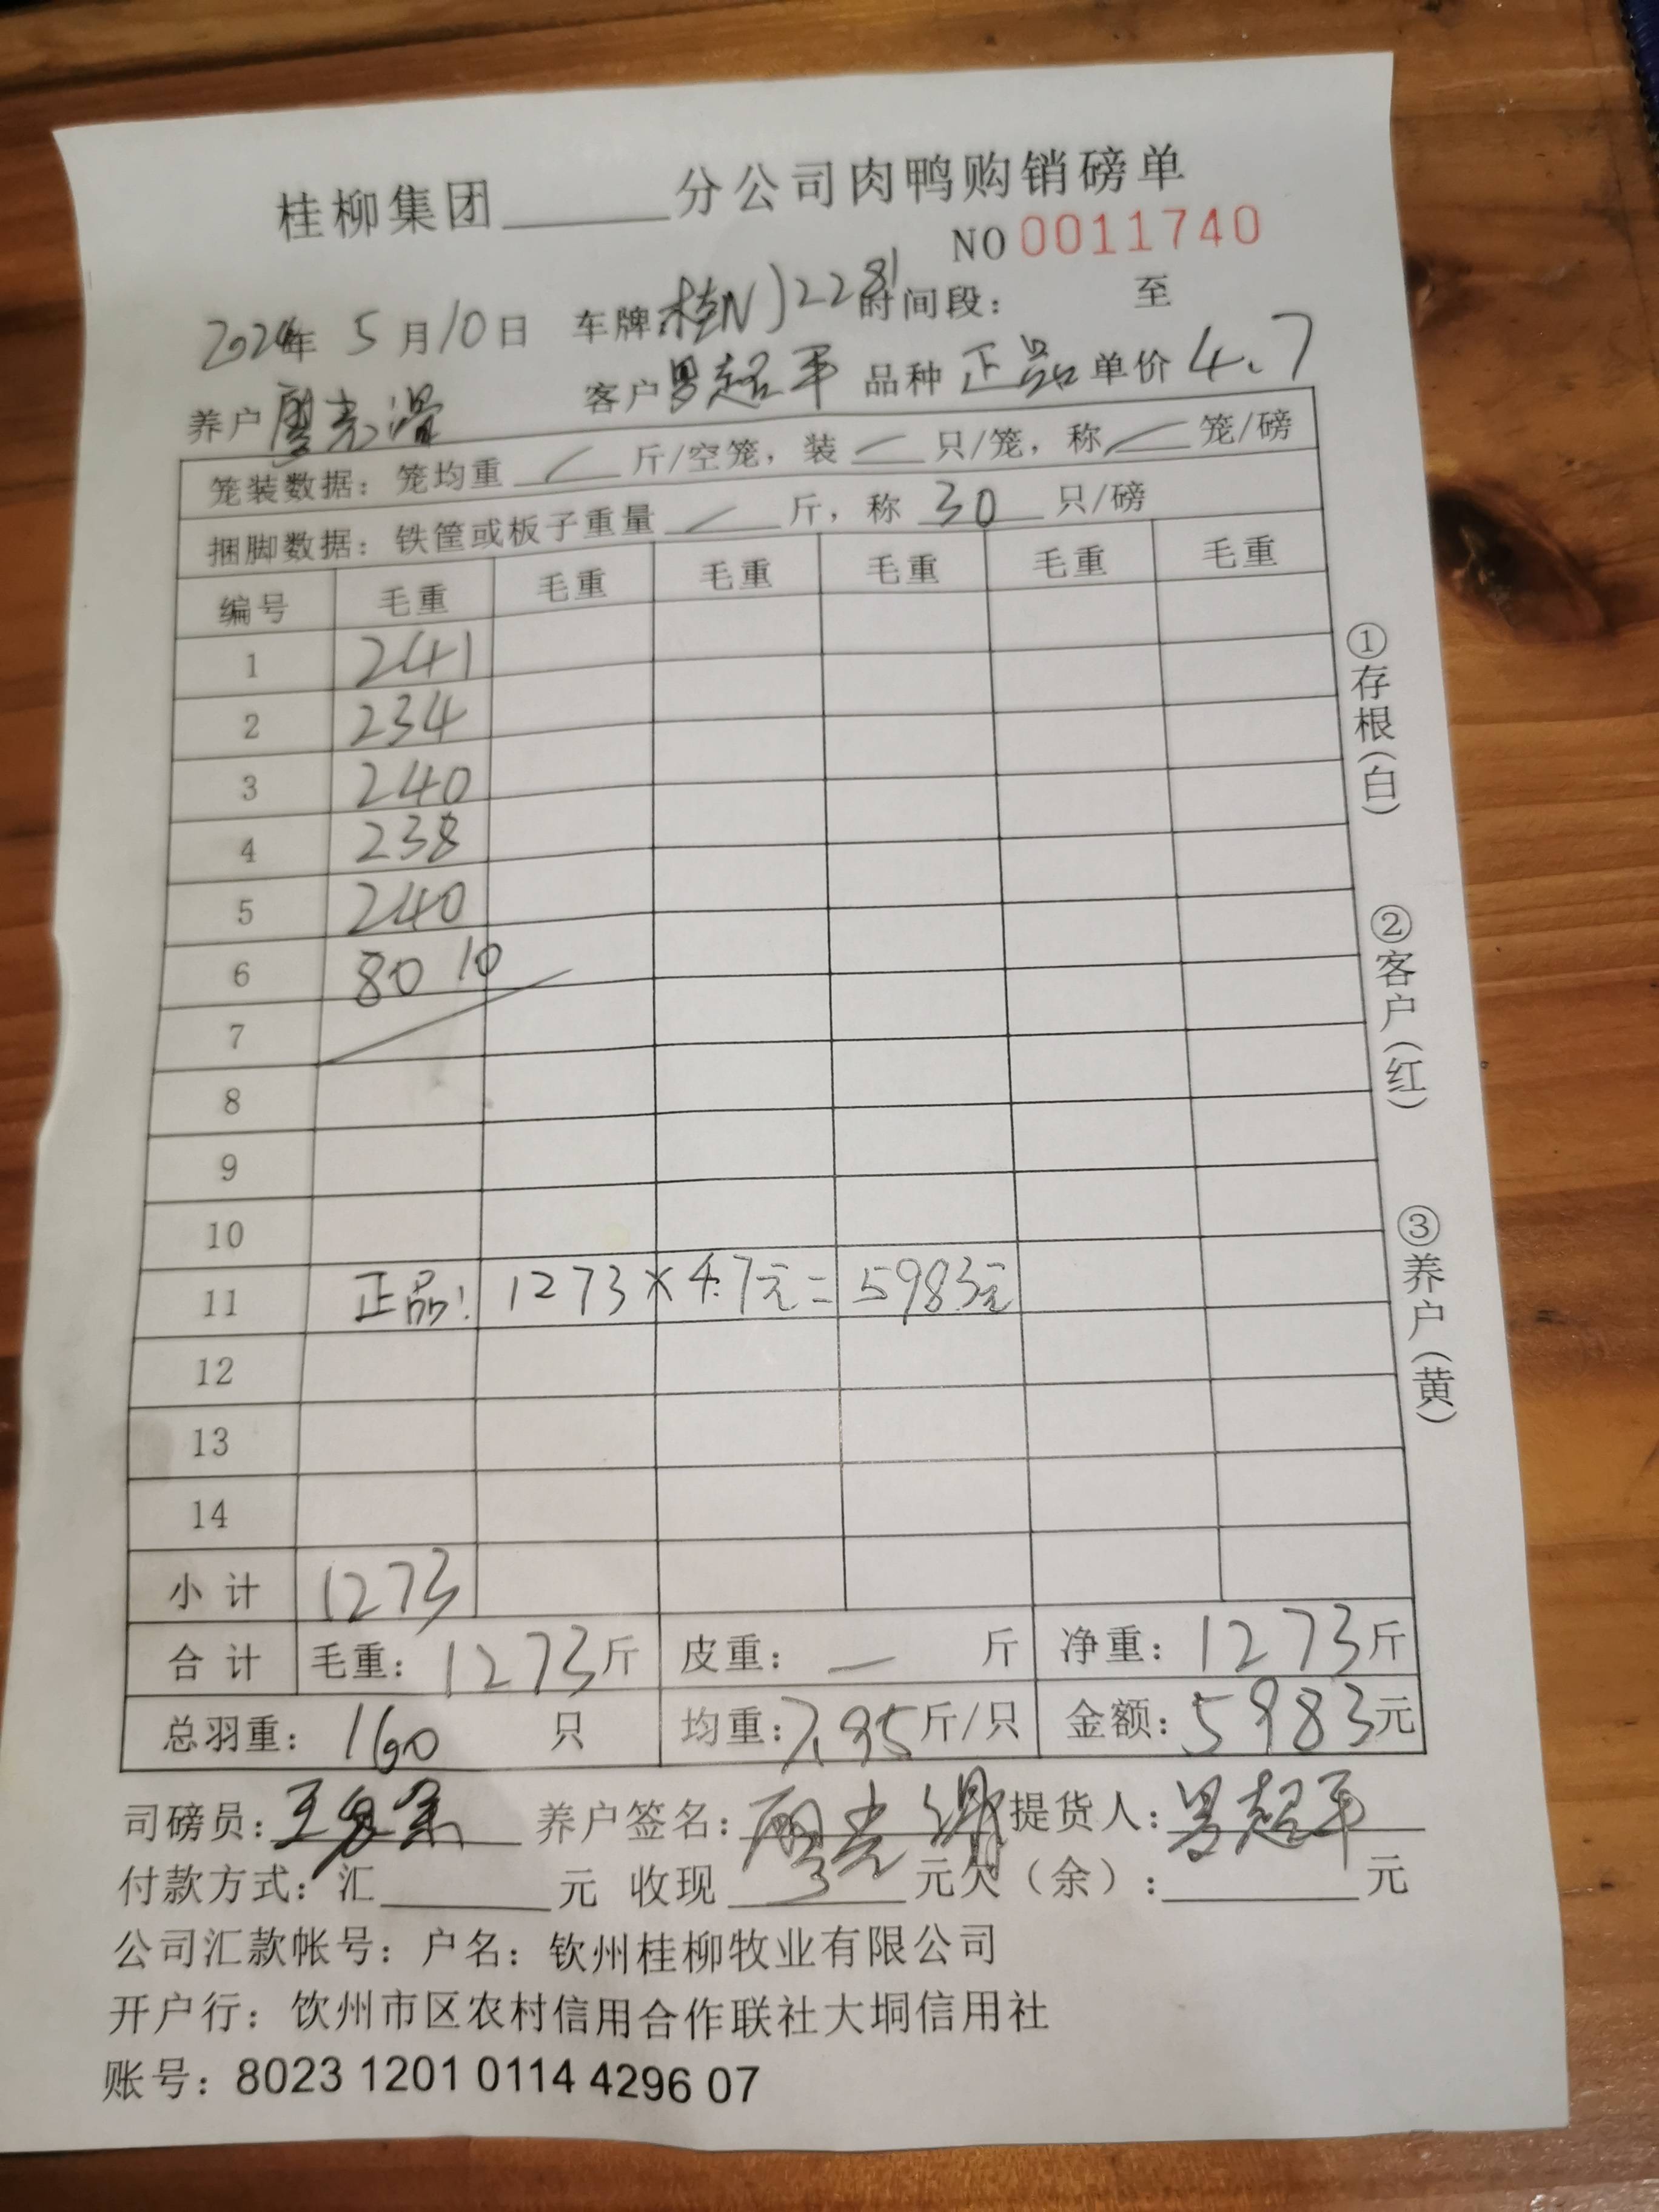 桂柳集团______分公司肉鸭购销磅单
NO 0011740
2024年 5月10日 车牌桂NJ2281时间段: 至
养户廖光 客户罗超平 品种 正品 单价 4.7
笼装数据: 笼均重 / 斤/空笼, 装 / 只/笼, 称 / 笼/磅
捆脚数据: 铁筐或板子重量 / 斤, 称 30 只/磅
编号 毛重 毛重 毛重 毛重 毛重 毛重
1 241
2 234
3 240
4 238
5 240
6 80 10
7
8
9
10
11 正品: 1273×4.7元=5983元
12
13
14
小计 1273
合计 毛重: 1273斤 皮重: — 斤 净重: 1273斤
总羽重: 160 只 均重: 7.95斤/只 金额: 5983元
司磅员: 王 养户签名: 廖光 提货人: 罗超平
付款方式: 汇______元 收现______元欠(余):______元
公司汇款帐号: 户名: 钦州桂柳牧业有限公司
开户行: 饮州市区农村信用合作联社大垌信用社
账号: 8023 1201 0114 4296 07
①存根(白)
②客户(红)
③养户(黄)